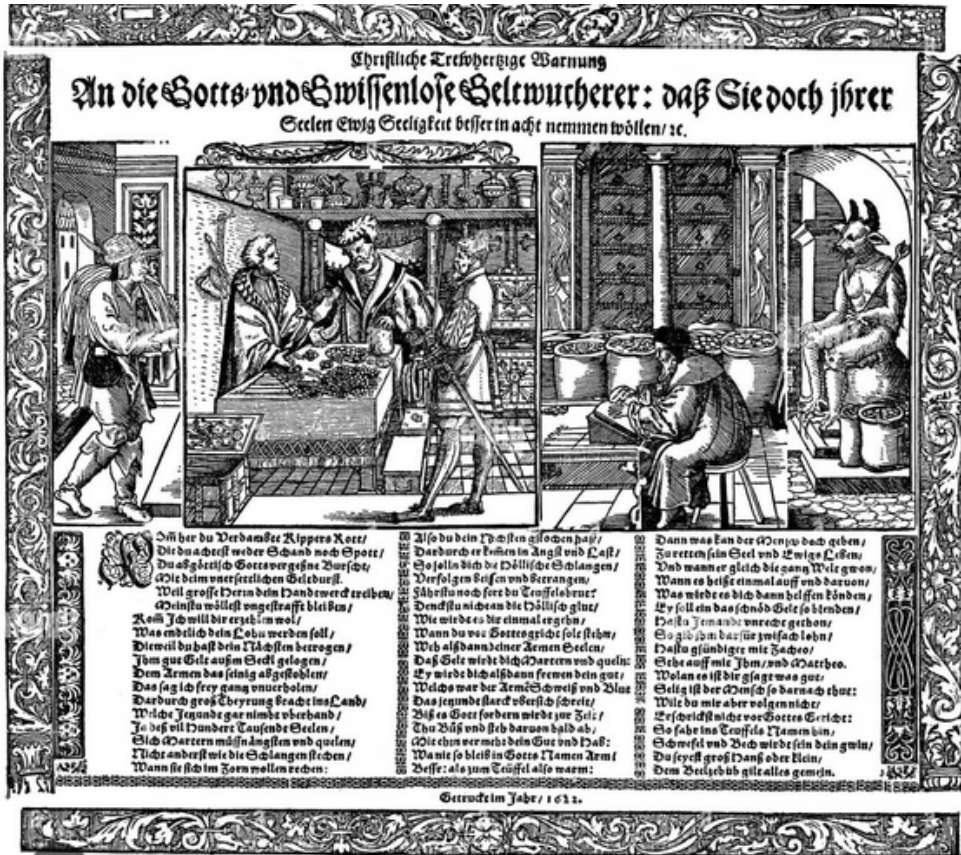 Christliche Trewhertzige Warnung
An die Gotts-vnd Gwissenlose Geltwucherer: daß Sie doch jhrer
Seelen Ewig Seeligkeit besser in acht nemmen wöllen/ ꝛc.
Kom̃ her du Verdambte Kippers Rott/
Die du achtest weder Schand noch Spott/
Du abgöttisch Gotts vergeßne Burscht/
Mit deim vnersettlichen Geltdurst.
Weil grosse Herrn dein Handtwerck treiben/
Meinstu wöllest vngestrafft bleiben/
Kom̃ Jch will dir erzehlen wol/
Was endtlich dein Lohn werden soll/
Dieweil du hast dein Nächsten betrogen/
Jhm gut Gelt außm Seckl gelogen/
Dem Armen das seinig abgestohlen/
Das sag ich frey gantz vnuerholen/
Dardurch groß Theyrung bracht ins Land/
Welche Jetzunde gar nimbt vberhand/
Ja deß vil Hundert Tausende Seelen/
Sich Martern müssn ängsten vnd quelen/
Nicht anderst wie die Schlangen stechen/
Wann sie sich im Zorn wollen rechen:
Also du dein Nechsten gstochen hast/
Dardurch er kom̃en in Angst vnd Last/
So solln dich die Höllische Schlangen/
Verfolgen beissen vnd
Fährstu noch fort du Teuffelsbrut?
Denckstu nich an die Höllisch glut/
Wie wirdt es dir einmal ergehn/
Wann du vor Gottes gricht solt stehn/
Weh alßdann deiner Armen Seelen/
Daß Gelt wirdt dich Martern vnd queln:
Ey wirdt dich alßdann frewen dein gut/
Welchs war der Armẽ Schweiß vnd Blut
Das jetzunde starck vbersich schreit/
Biß es Gott fordern wirdt zur Zeit/
Thu Büß vnd steh daruon bald ab/
Mit ehrn vermehr dein Gut vnd Hab:
Wa nit so bleib in Gotts Namen Arm/
Besser als zum Teüffel also warm:
Dann was kan der Mensch doch geben/
Zu retten sein Seel vnd Ewigs Leben/
Vnd wann er gleich die gantz Welt gwon/
Wann es heißt einmal auff vnd daruon/
Was wirdt es dich dann helffen könden/
Ey soll ein das schnöd Gelt so blenden/
Hastu Jemandt vnrecht gethon/
So gib jhm darfür zwifach lohn/
Hastu gsündiget mit Zacheo/
Stehe auff mit Jhm/ vnd Mattheo.
Wolan es ist dir gsagt was gut/
Selig ist der Mensch so darnach thut:
Wilt du mir aber volgen nicht/
Erschrickst nicht vor Gottes Gericht:
So fahr ins Teuffels Namen hin/
Schwefel vnd Bech wirdt sein dein gwin/
Du seyest groß Hanß oder klein/
Dem Beelzebub gilt alles gemein.
Getruckt im Jahr/ 1622.